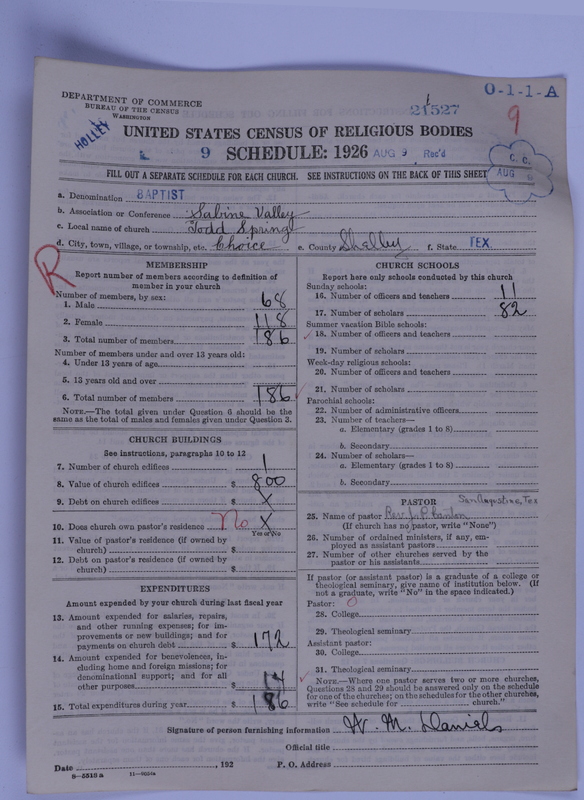 O-1-1-A
DEPARTMENT OF COMMERCE
BUREAU OF THE CENSUS
WASHINGTON
21527
9
HOLLEY
UNITED STATES CENSUS OF RELIGIOUS BODIES
9 SCHEDULE: 1926 AUG 9 Rec'd
C. C.
AUG 6
FILL OUT A SEPARATE SCHEDULE FOR EACH CHURCH. SEE INSTRUCTIONS ON THE BACK OF THIS SHEET
a. Denomination BAPTIST
b. Association or Conference Sabine Valley
c. Local name of church Todd Spring
d. City, town, village, or township, etc. Choice e. County Shelby f. State TEX.
R
MEMBERSHIP
Report number of members according to definition of
member in your church
Number of members, by sex:
1. Male 68
2. Female 118
3. Total number of members 186
Number of members under and over 13 years old:
4. Under 13 years of age
5. 13 years old and over
6. Total number of members 186
NOTE.—The total given under Question 6 should be the
same as the total of males and females given under Question 3.
CHURCH BUILDINGS
See instructions, paragraphs 10 to 12
7. Number of church edifices 1
8. Value of church edifices $ 800
9. Debt on church edifices $ X
10. Does church own pastor's residence No X
Yes or No
11. Value of pastor's residence (if owned by
church) $
12. Debt on pastor's residence (if owned by
church) $
EXPENDITURES
Amount expended by your church during last fiscal year
13. Amount expended for salaries, repairs,
and other running expenses; for im-
provements or new buildings; and for
payments on church debt $ 172
14. Amount expended for benevolences, in-
cluding home and foreign missions; for
denominational support; and for all
other purposes $ 14
15. Total expenditures during year $ 186
CHURCH SCHOOLS
Report here only schools conducted by this church
Sunday schools:
16. Number of officers and teachers 11
17. Number of scholars 82
Summer vacation Bible schools:
18. Number of officers and teachers
19. Number of scholars
Week-day religious schools:
20. Number of officers and teachers
21. Number of scholars
Parochial schools:
22. Number of administrative officers
23. Number of teachers—
a. Elementary (grades 1 to 8)
b. Secondary
24. Number of scholars—
a. Elementary (grades 1 to 8)
b. Secondary
PASTOR San Augustine, Tex
25. Name of pastor Rev.
(If church has no pastor, write "None")
26. Number of ordained ministers, if any, em-
ployed as assistant pastors
27. Number of other churches served by the
pastor or his assistants
If pastor (or assistant pastor) is a graduate of a college or
theological seminary, give name of institution below. (If
not a graduate, write "No" in the space indicated.)
Pastor: O
28. College
29. Theological seminary
Assistant pastor:
30. College
31. Theological seminary
NOTE.—Where one pastor serves two or more churches,
Questions 28 and 29 should be answered only on the schedule
for one of the churches; on the schedules for the other churches,
write "See schedule for church."
Signature of person furnishing information W. M. Daniels
Official title
Date , 192 P. O. Address
8-5513a 11-9054a